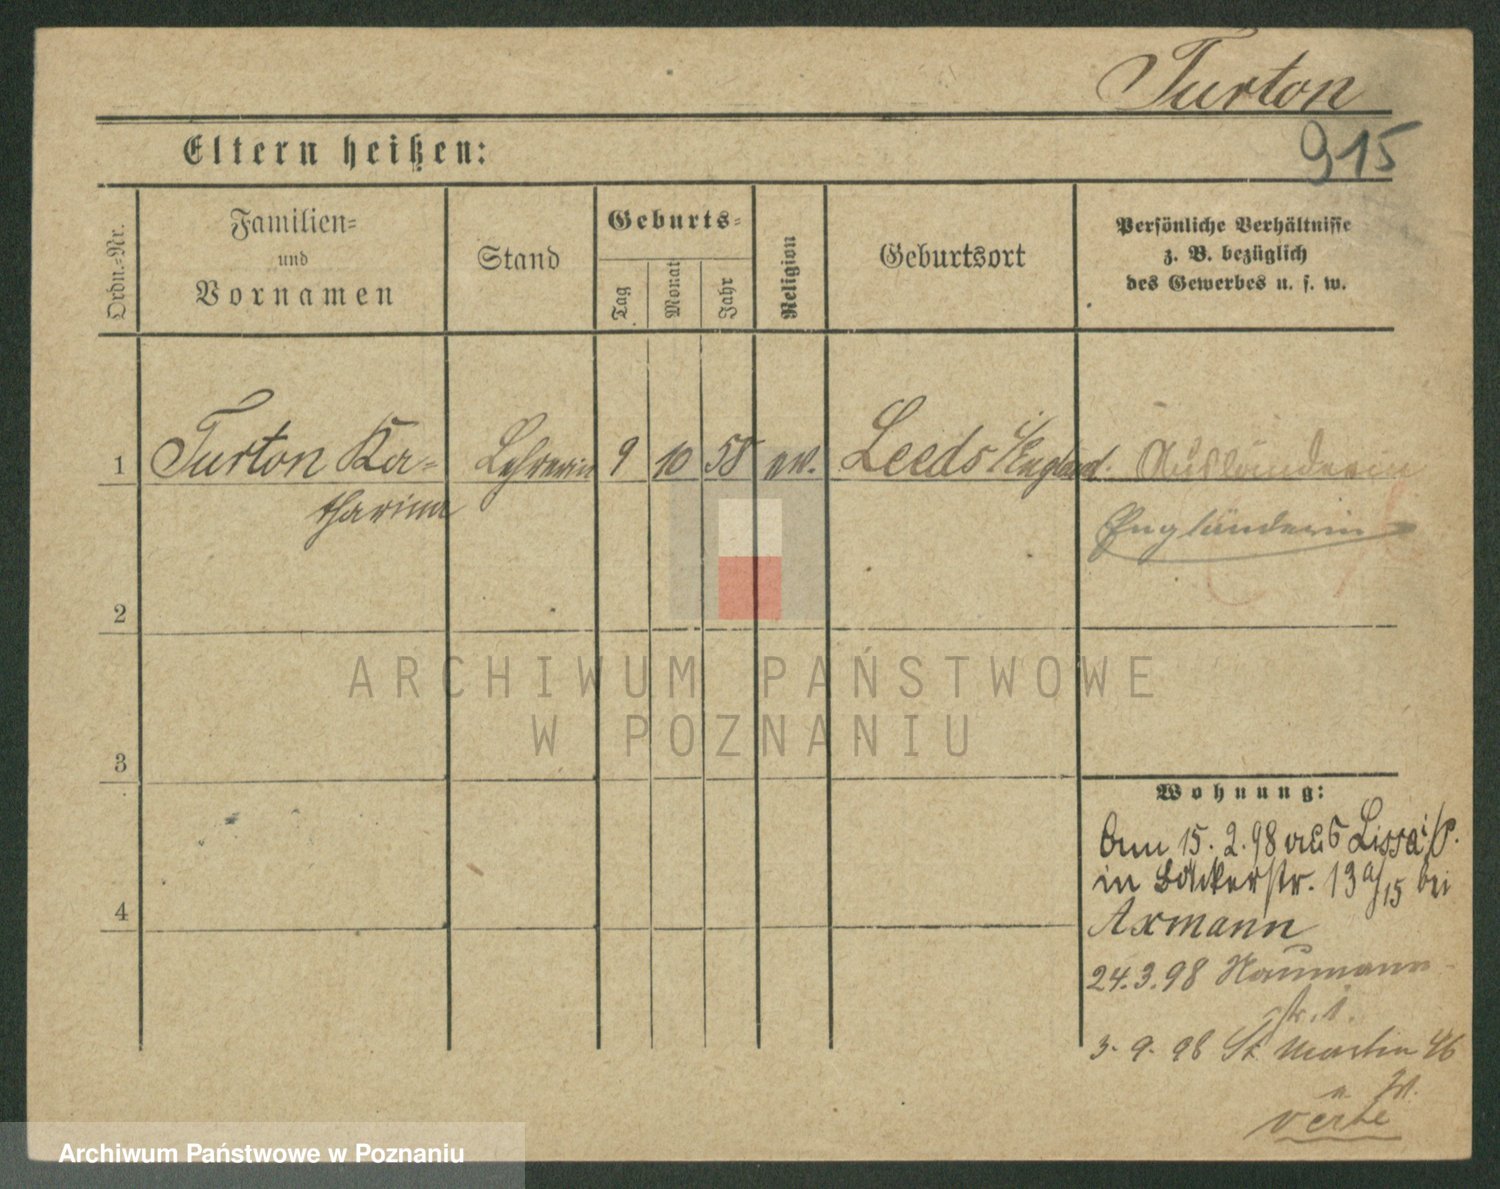 Turton
915
Eltern heißen:
Ordn.-Nr.
Familien-
und
Vornamen
Stand
Geburts-
Tag
Monat
Jahr
Religion
Geburtsort
Persönliche Verhältnisse
z. B. bezüglich
des Gewerbes u. s. w.
1 Turton Ka- Lehrerin 9 10 58 ev. Leeds i/England. Ausländerin
tharina
Engländerin
2
3
4
ARCHIWUM PAŃSTWOWE
W POZNANIU
Wohnung:
Am 15. 2. 98 aus Lissa i/P.
in Bäckerstr. 13a/15 bei
Axmann
24. 3. 98 Naumann-
str. 1.
3. 9. 98 St Martin 46
verte
Archiwum Państwowe w Poznaniu